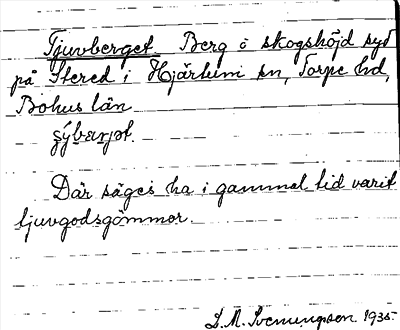 Tjuvberget. Berg o skogshöjd syd
på Stered i Hjärtum sn, Torpe hd,
Bohus län

Där säges ha i gammal tid varit
tjuvgodsgömmor.
S. M. Svenungson. 1935